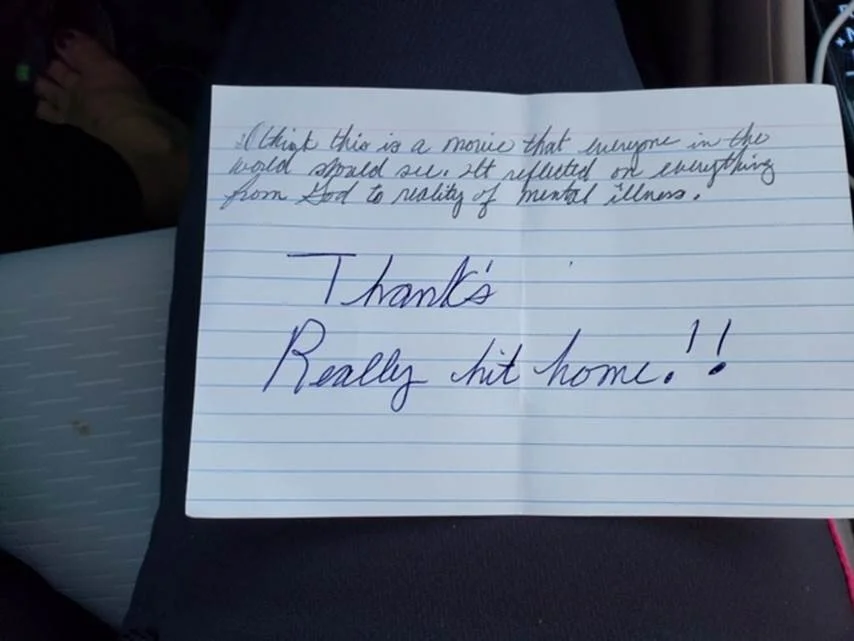 I think this is a movie that everyone in the
world should see. It reflected on everything
from God to reality of mental illness.
Thank's
Really hit home!!